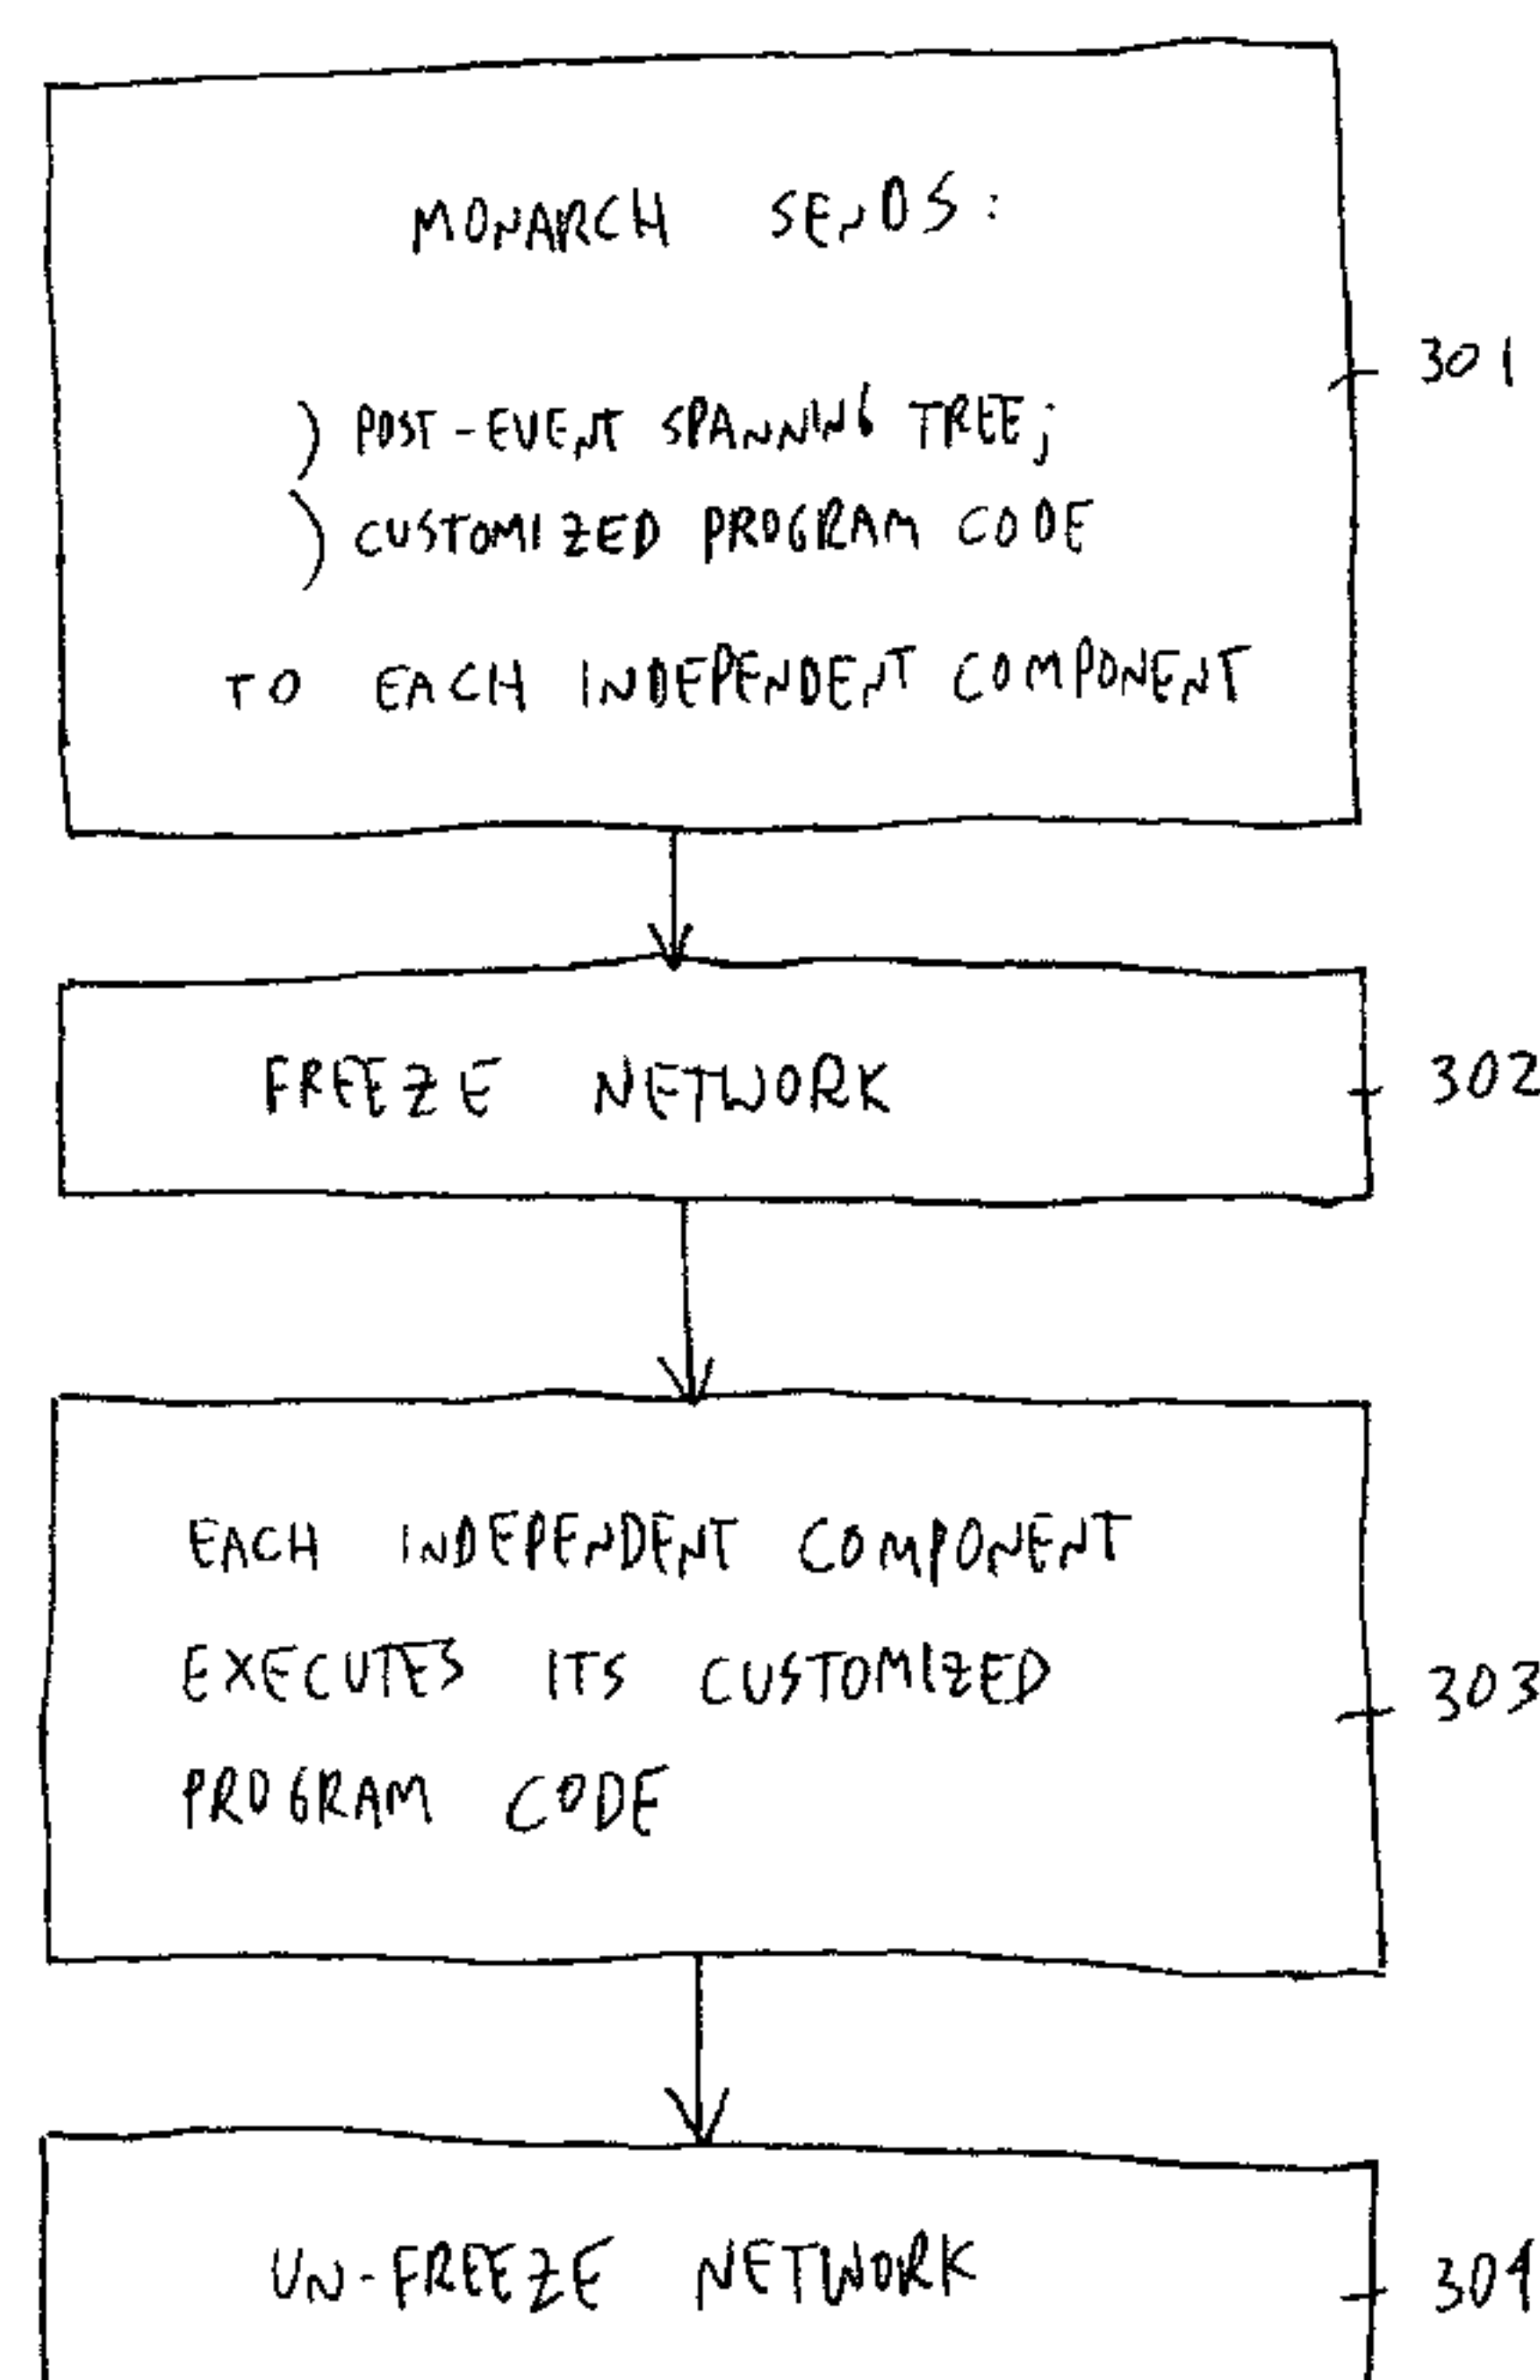 MONARCH SENDS:
) POST-EVENT SPANNING TREE;
) CUSTOMIZED PROGRAM CODE
TO EACH INDEPENDENT COMPONENT
301
FREEZE NETWORK
302
EACH INDEPENDENT COMPONENT
EXECUTES ITS CUSTOMIZED
PROGRAM CODE
303
UN-FREEZE NETWORK
304